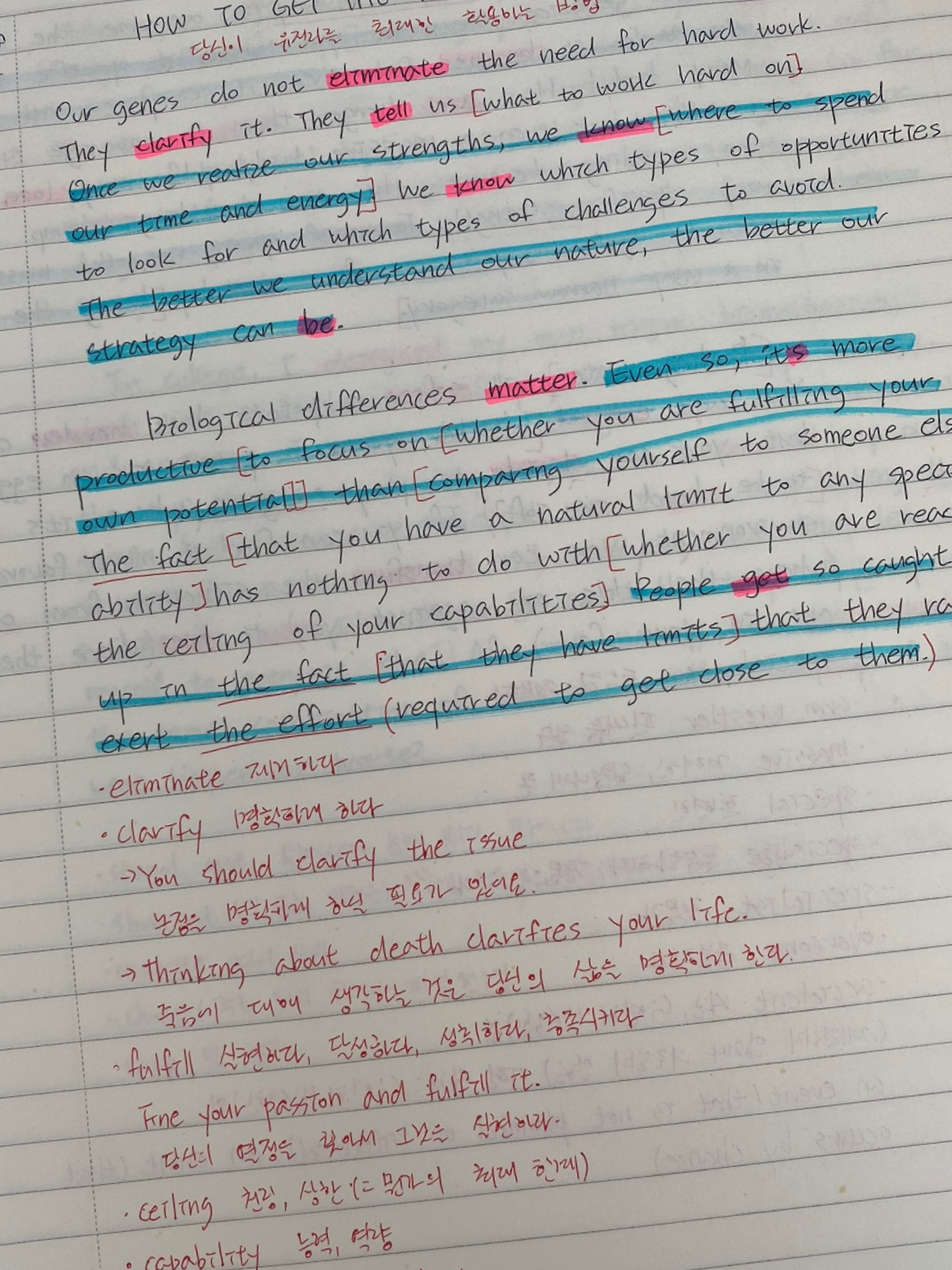 HOW TO GET THE
당신이 유전자를 최대한 활용하는 방법
Our genes do not eliminate the need for hard work.
They clarify it. They tell us [what to work hard on].
Once we realize our strengths, we know [where to spend
our time and energy] we know which types of opportunities
to look for and which types of challenges to avoid.
The better we understand our nature, the better our
strategy can be.
Biological differences matter. Even so, it's more
productive [to focus on [whether you are fulfilling your
own potential]] than [comparing yourself to someone els
The fact [that you have a natural limit to any spec
ability] has nothing to do with [whether you are reac
the ceiling of your capabilities] People get so caught
up in the fact [that they have limits] that they ra
exert the effort (required to get close to them.)
·eliminate 제거하다
·clarify 명확하게 하다
→You should clarify the issue
논점을 명확하게 하실 필요가 있어요.
→thinking about death clarifies your life.
죽음에 대해 생각하는 것은 당신의 삶을 명확하게 한다.
·fulfill 실현하다, 달성하다, 성취하다, 충족시키다
Fine your passion and fulfill it.
당신의 열정을 찾아서 그것을 실현하라.
·ceiling 천장, 상한 (= 뭔가의 최대 한계)
·capability 능력, 역량